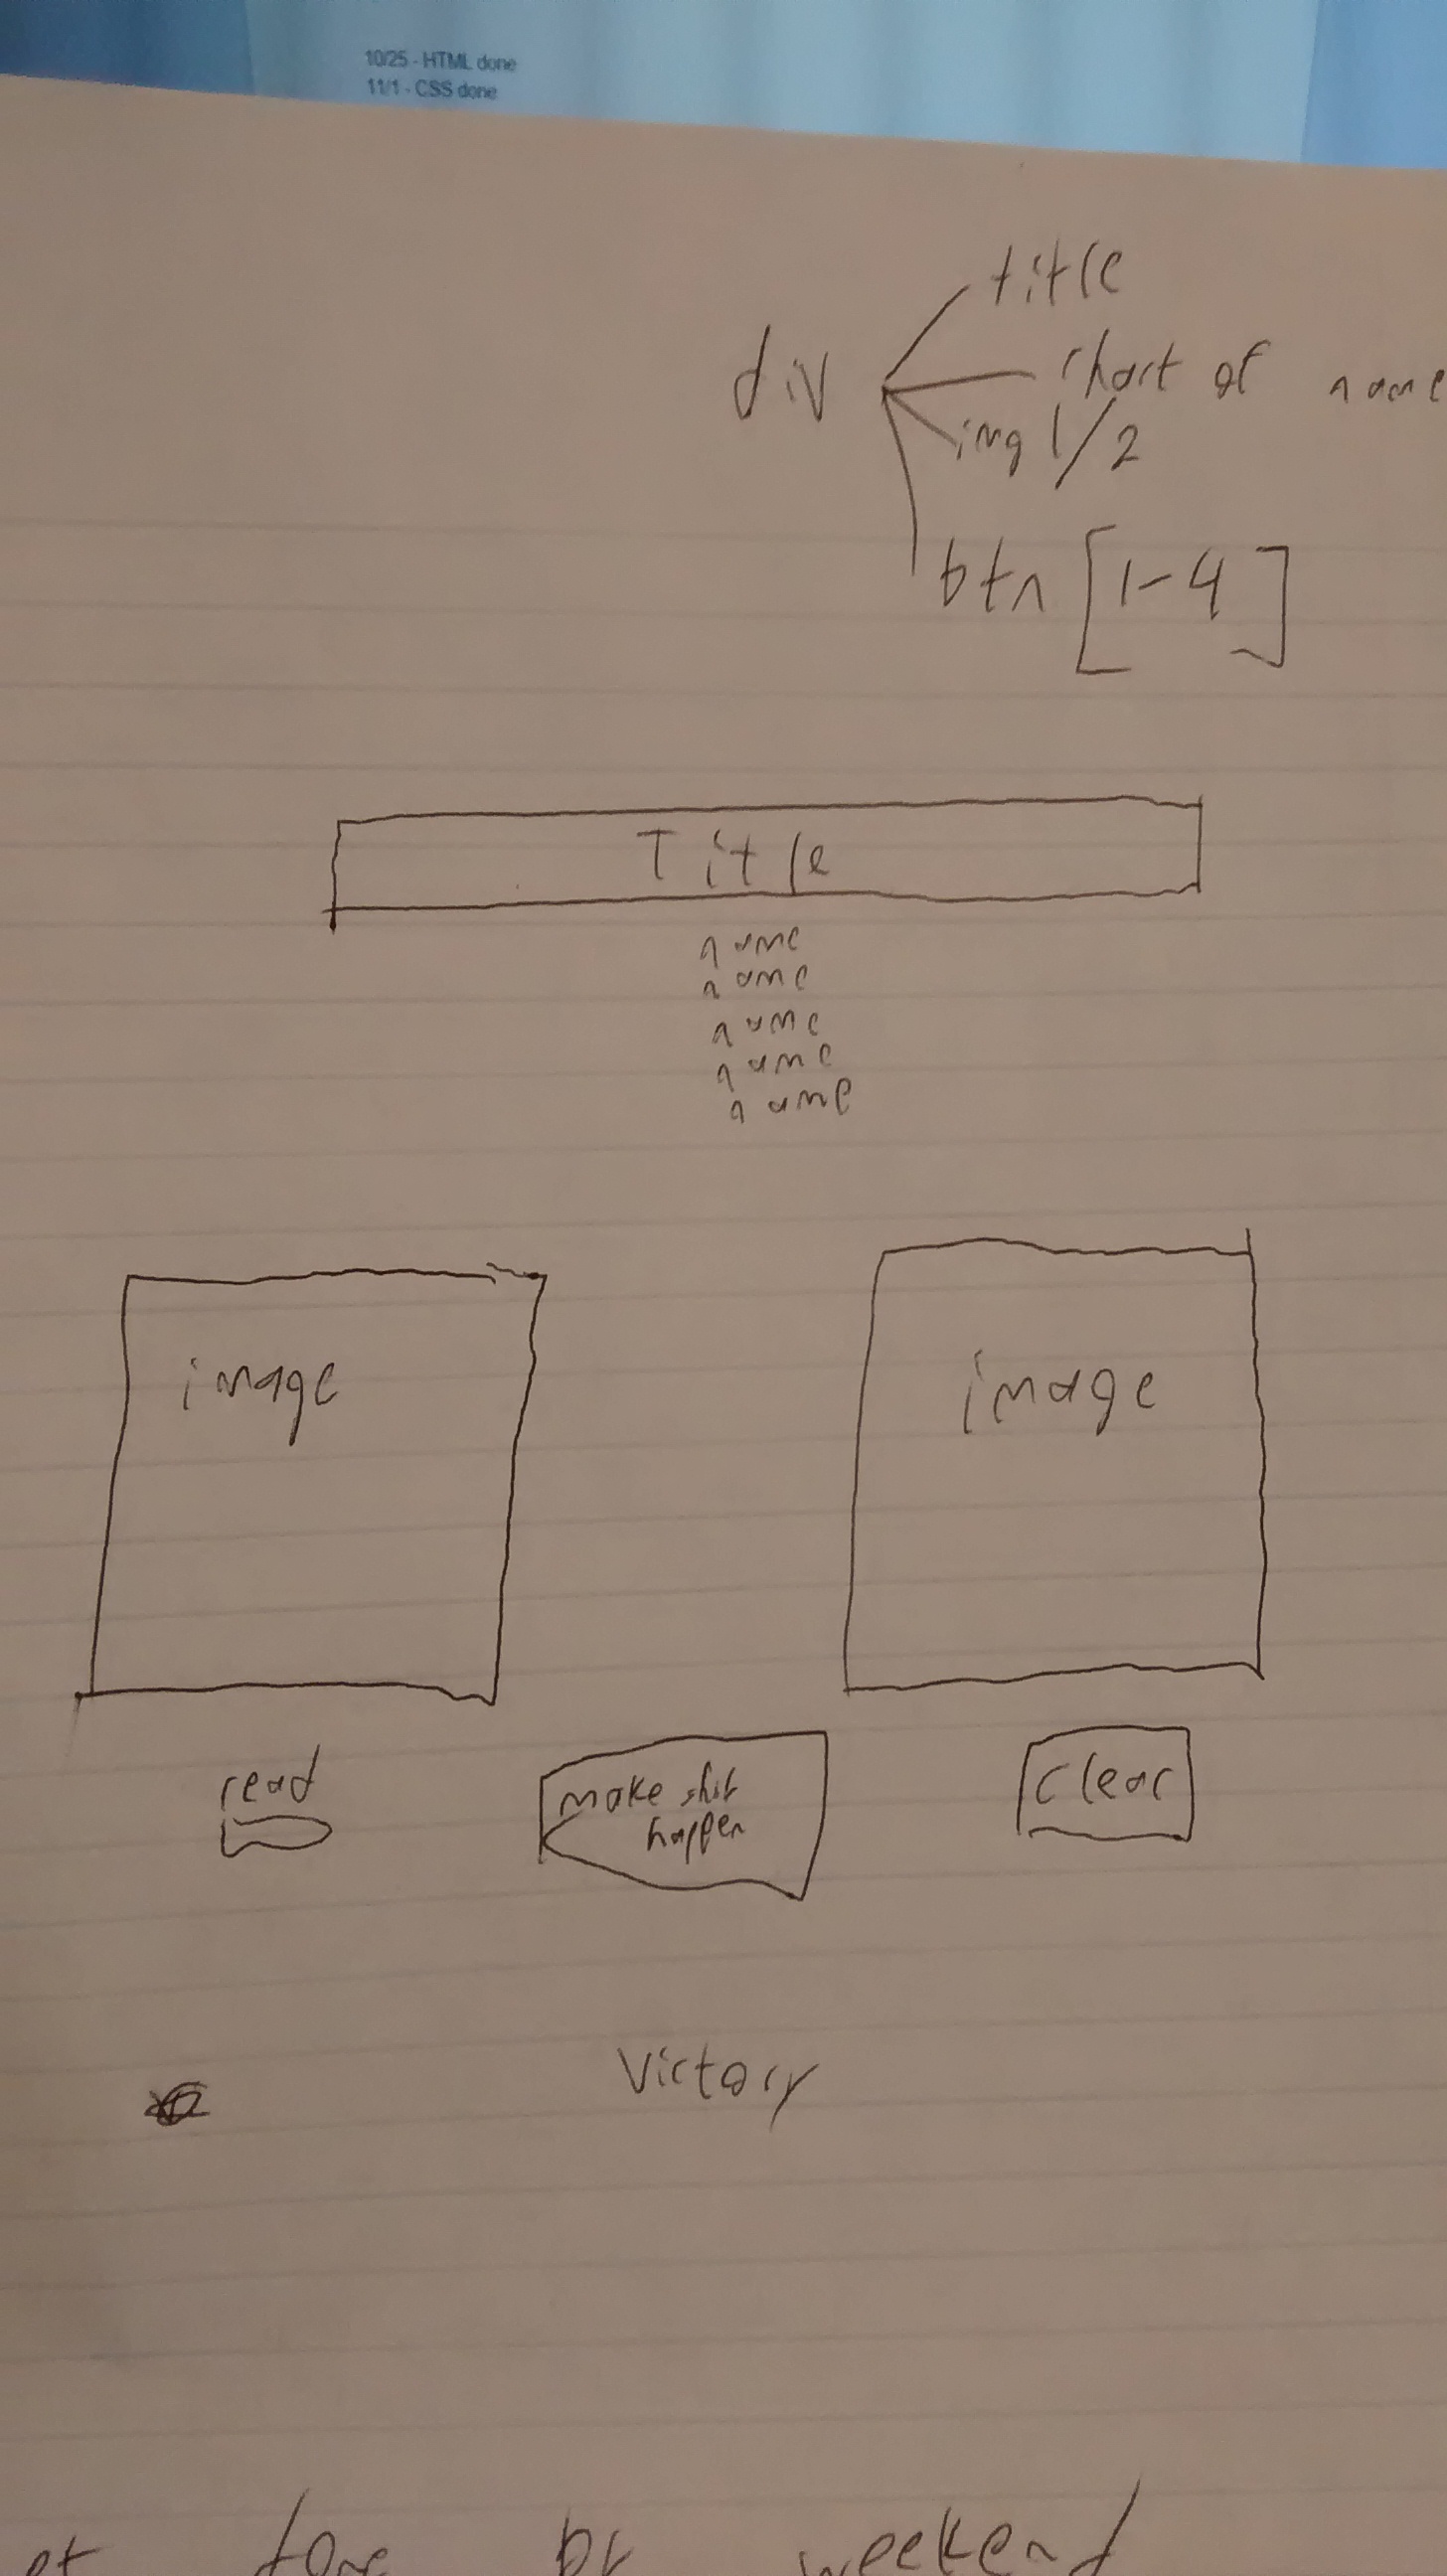 10/25 - HTML done
11/1 - CSS done
title
div
chart of name
img 1/2
btn [1-4]
Title
name
name
name
name
name
image
image
read
make shit
happen
clear
Victory
weekend